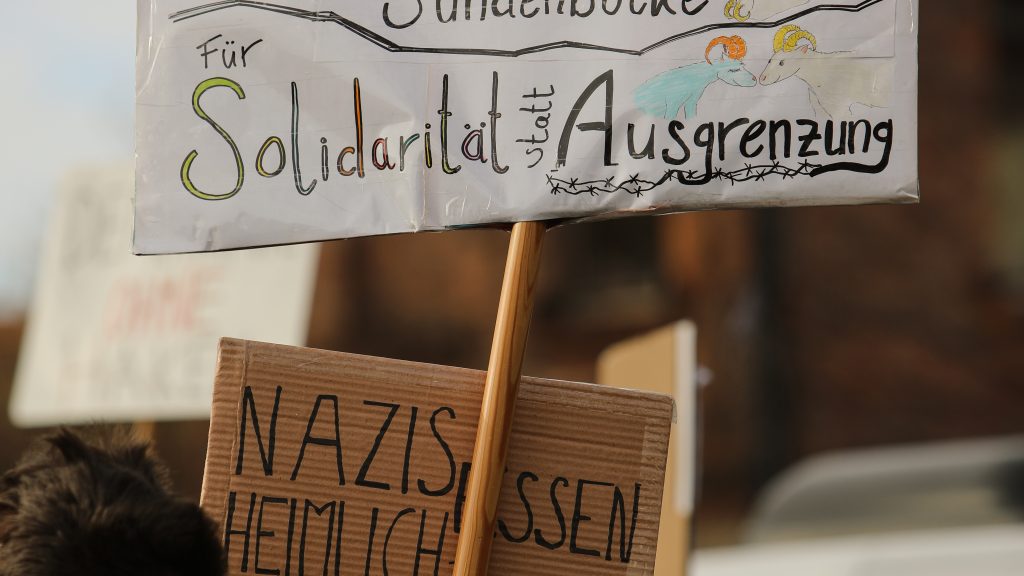 Sündenböcke
Für
Solidarität statt Ausgrenzung
OHNE
NAZIS ESSEN
HEIMLICH